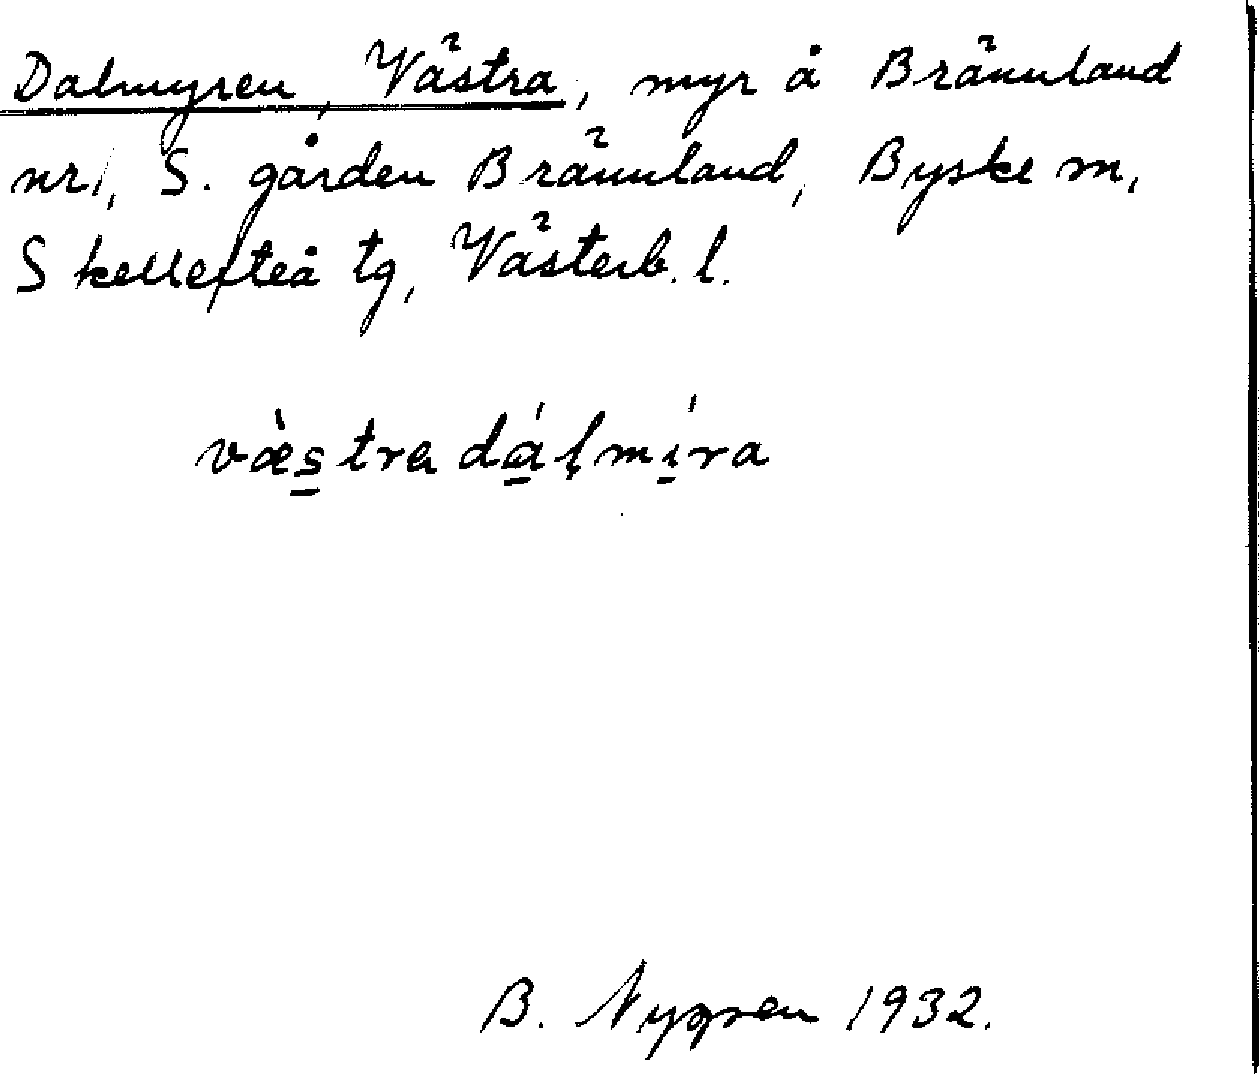 Dalmyren, Västra, myr å Brännland
nr 1, S. gården Brännland, Byske m,
Skellefteå tg, Västerb. l.
væ̀s̱tra dá̱ḷmí̱ra
B. Nygren 1932.